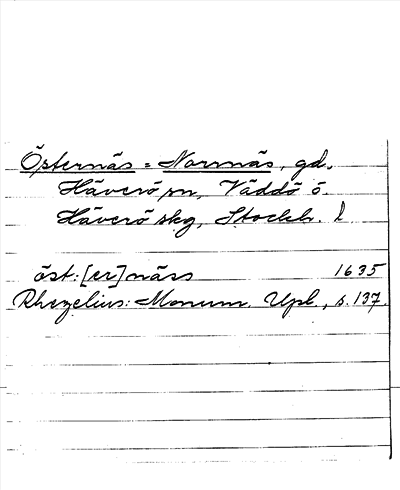 Östernäs = Norrnäs, gd.
Häverö sn, Väddö ö.
Häverö skg, Stockh. l.
öst:[er]näss 1635
Rhezelius: Monum. Upl., s. 137.